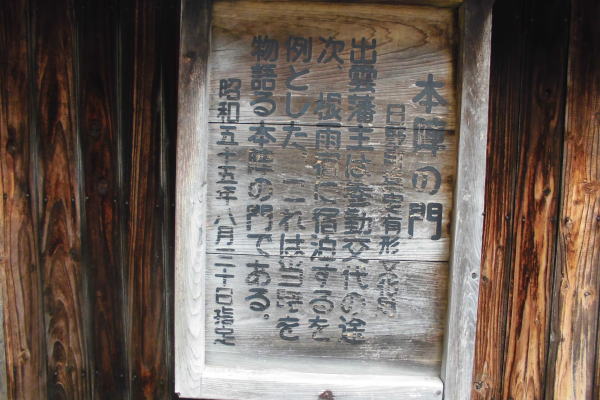 本陣の門
日野町歴史有形文化財
出雲藩主は参勤交代の途
次、板雨宿に宿泊するを
例とした。これは当時を
物語る本陣の門である。
昭和五十五年八月二十日指定